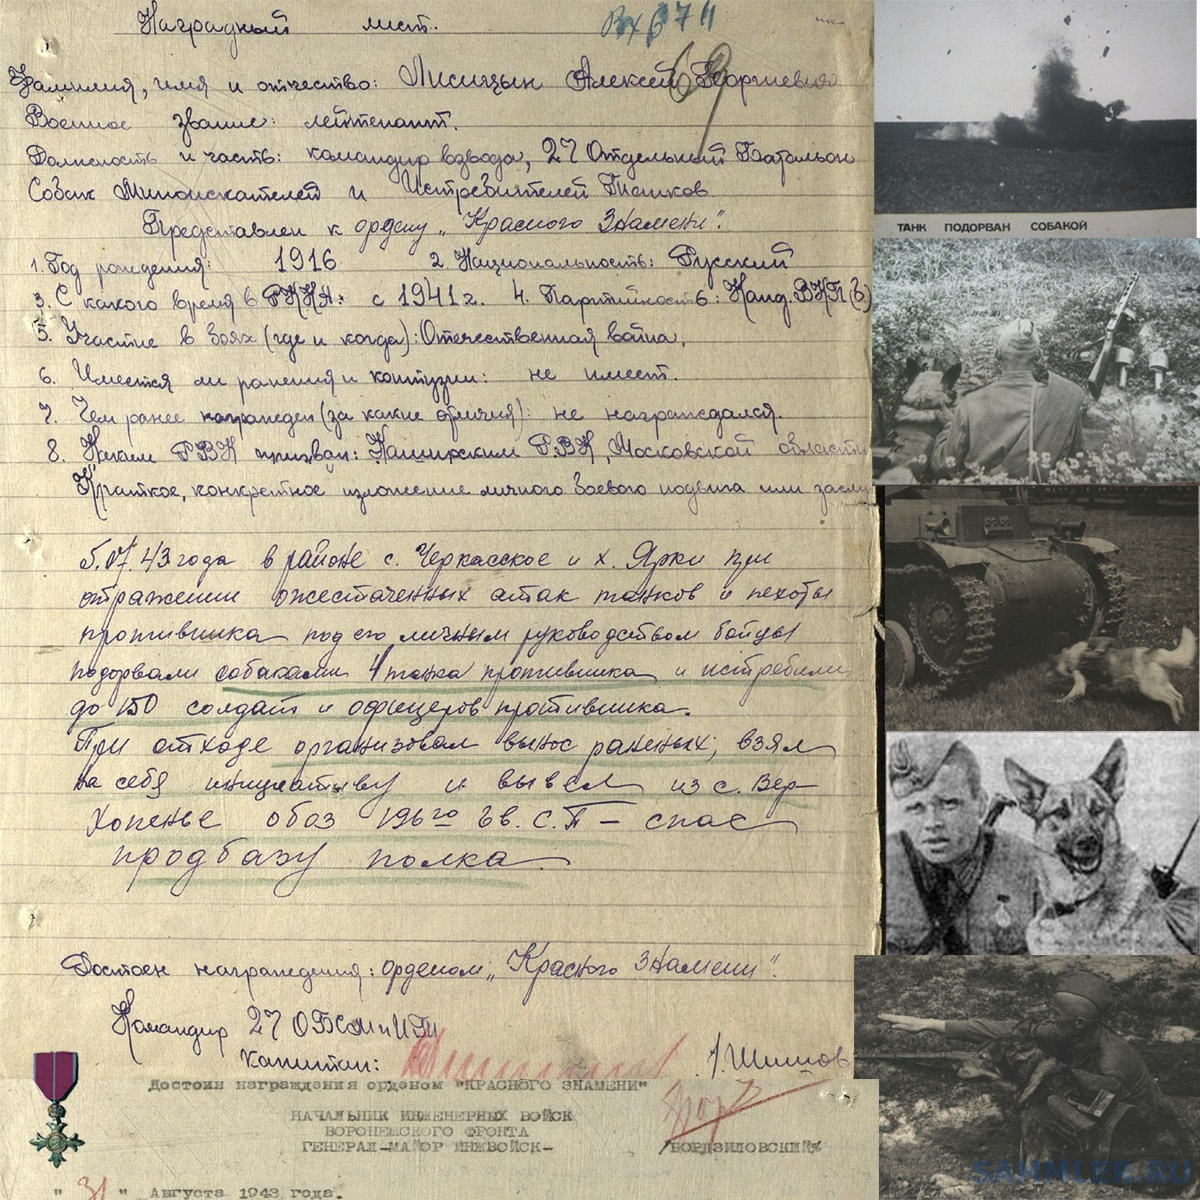 Наградный лист.
Вх 674
69
Фамилия, имя и отчество: Лисицын Алексей Георгиевич
Военное звание: лейтенант.
Должность и часть: командир взвода, 27 Отдельный Батальон
Собак Миноискателей и Истребителей Танков.
Представлен к ордену "Красного Знамени".
1. Год рождения: 1916 2. Национальность: Русский
3. С какого время в РККА: с 1941 г. 4. Партийность: Канд. ВКП(б)
5. Участие в боях (где и когда): Отечественная война.
6. Имеется ли ранения и контузии: не имеет.
7. Чем ранее награжден (за какие отличия): не награждался.
8. Каким РВК призван: Каширским РВК, Московской области
Краткое, конкретное изложение личного боевого подвига или заслу
5.07.43 года в районе с. Черкасское и х. Ярки при
отражении ожесточенных атак танков и пехоты
противника под его личным руководством бойцы
подорвали собаками 4 танка противника и истребили
до 150 солдат и офицеров противника.
При отходе организовал вынос раненых, взял
на себя инициативу и вывел из с. Вер-
хопенье обоз 196го Гв. С.П – спас
продбазу полка
Достоин награждения: орденом "Красного Знамени".
Командир 27 ОБСМиИТ
капитан: /. Шишов
Достоин награждения орденом "КРАСНОГО ЗНАМЕНИ"
НАЧАЛЬНИК ИНЖЕНЕРНЫХ ВОЙСК
ВОРОНЕЖСКОГО ФРОНТА
ГЕНЕРАЛ-МАЙОР ИНЖВОЙСК- /БОРДЗИЛОВСКИЙ/
" 31 " Августа 1943 года.
ТАНК ПОДОРВАН СОБАКОЙ
SAHMLEK.RU